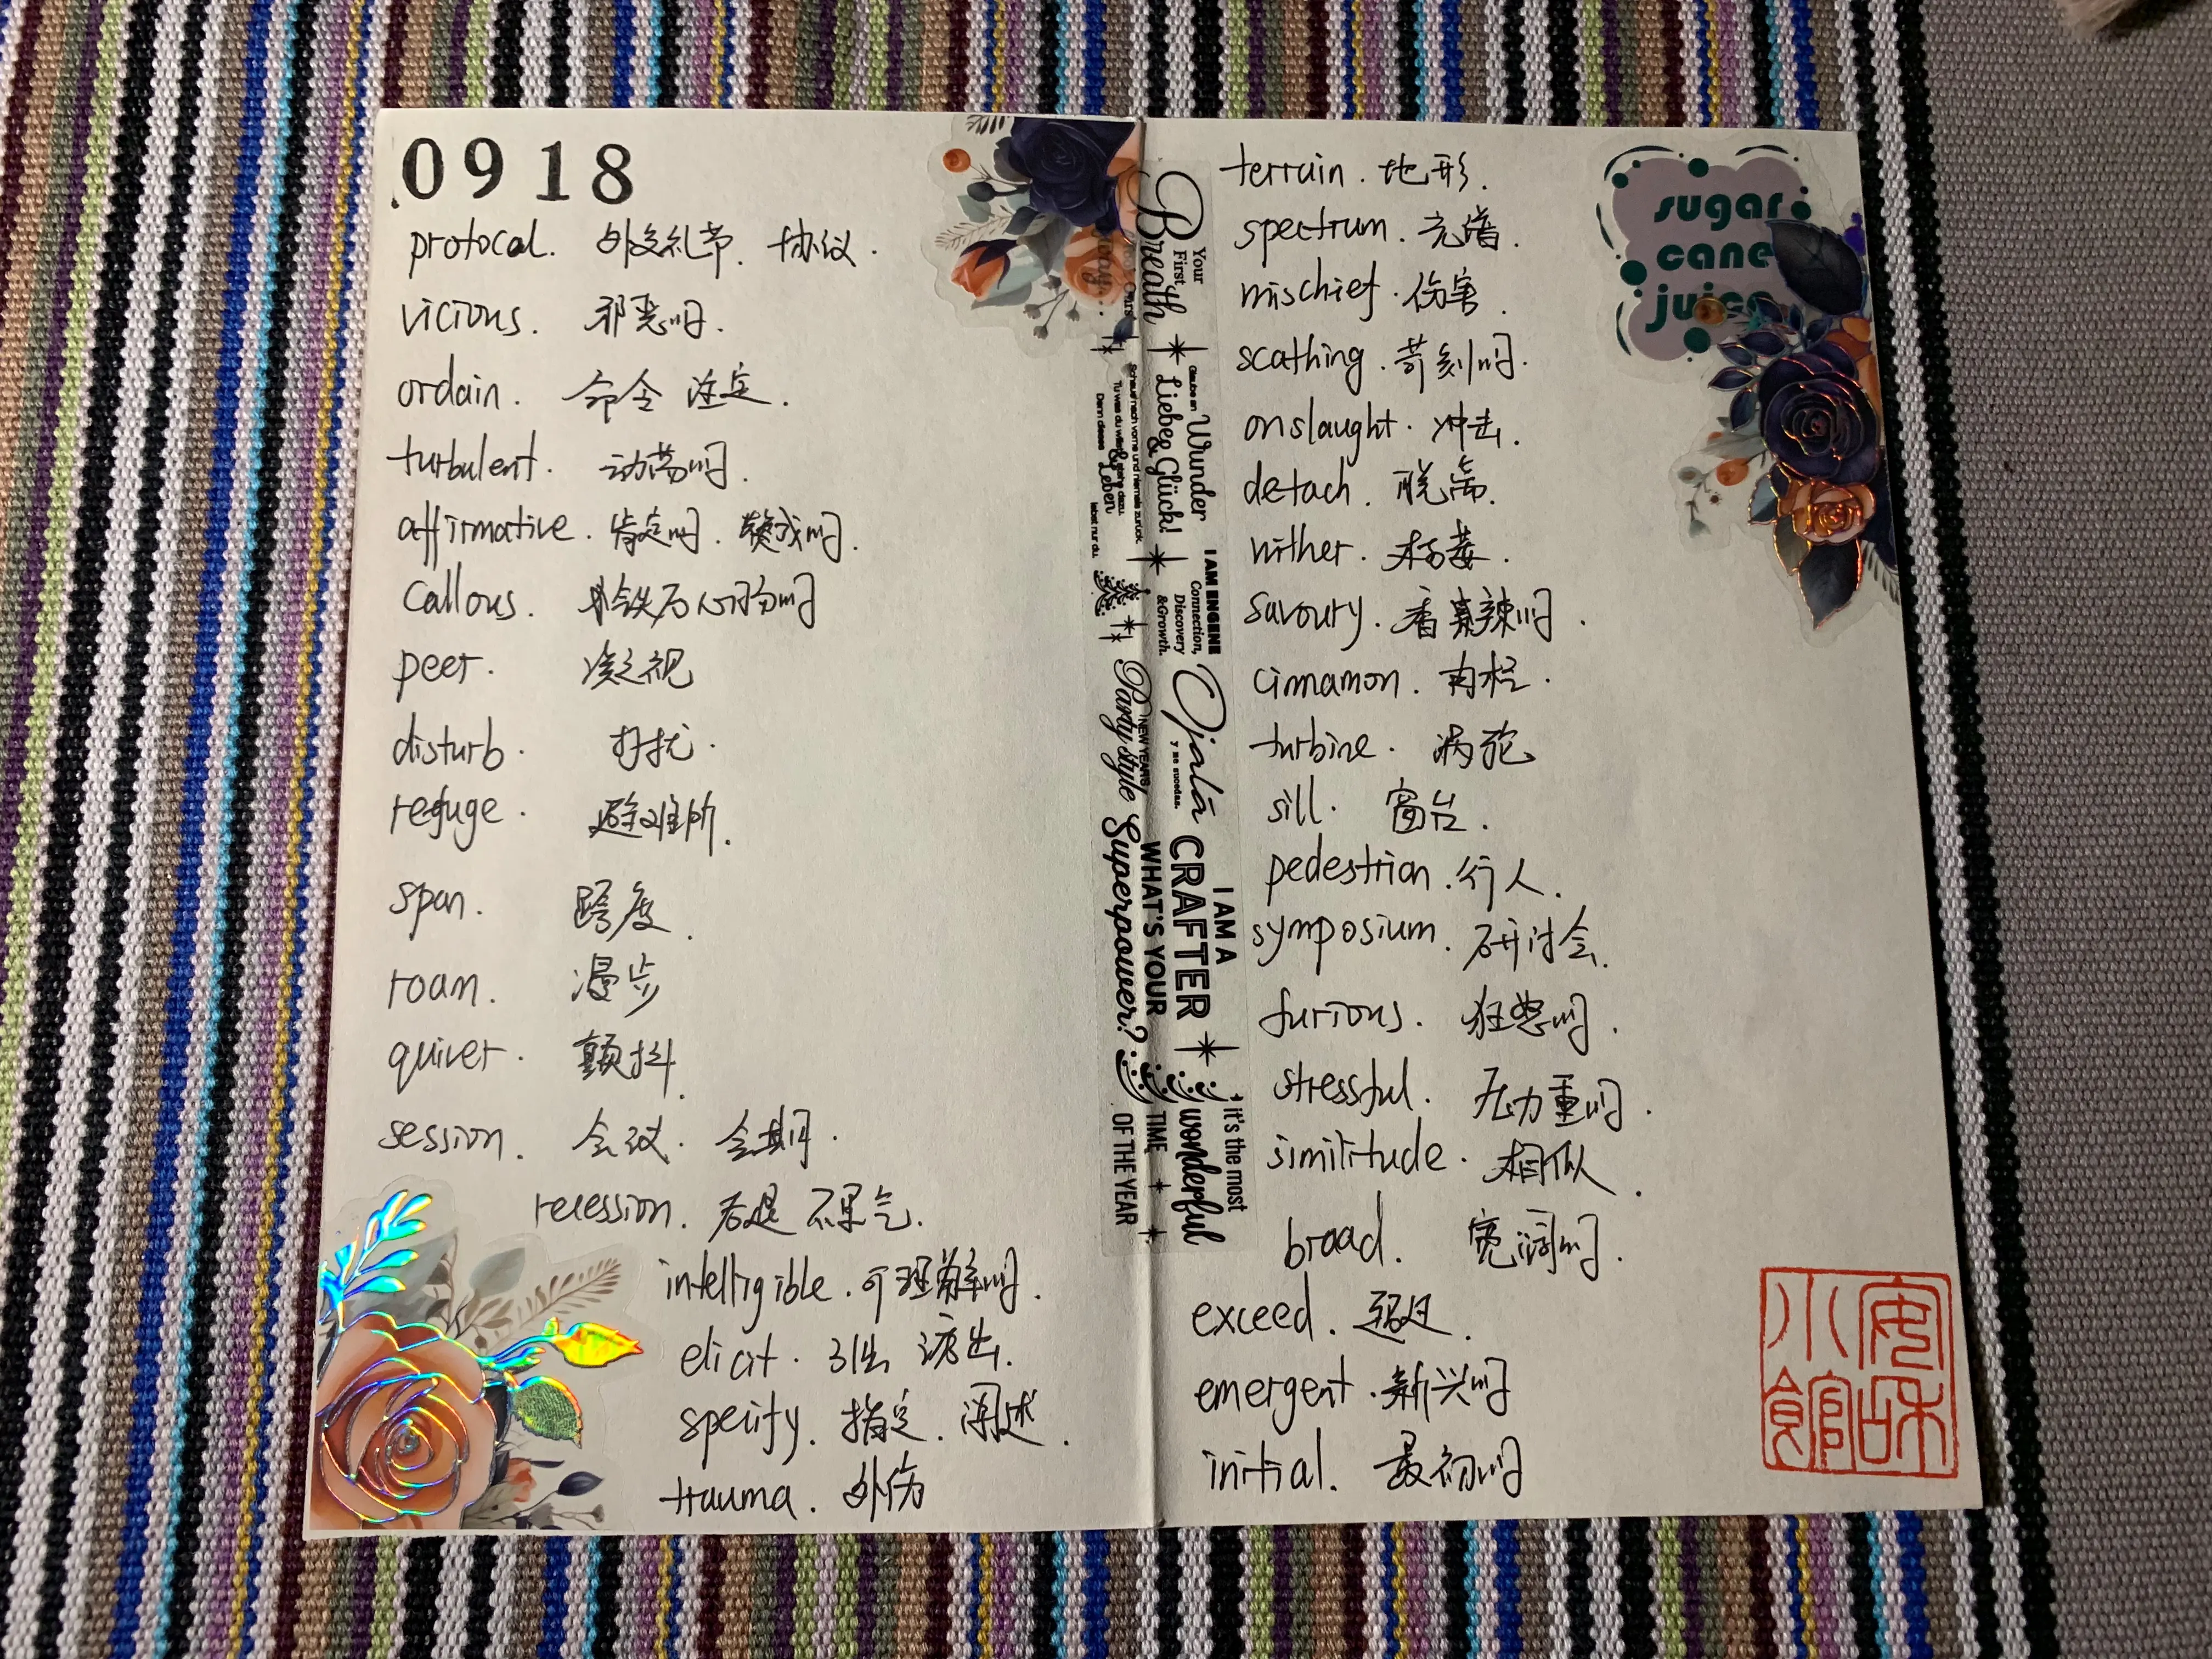 0918
protocal. 外交礼节. 协议.
vicious. 邪恶的.
ordain. 命令 注定.
turbulent. 动荡的.
affirmative. 肯定的. 赞成的.
callous. 铁石心肠的
peer. 凝视
disturb. 打扰.
refuge. 避难所.
span. 跨度.
roam. 漫步
quiver. 颤抖.
session. 会议. 会期.
recession. 衰退 不景气.
intelligible. 可理解的.
elicit. 引出 诱出.
specify. 指定. 阐述.
trauma. 外伤
Your First Breath
Glaube an Wunder Liebe & Glück!
Schaue nach vorne und niemals zurück.
Tu was du willst & stehe dazu.
Denn dieses Leben lebst nur du.
I AM ENGENE
Connection, Discovery & Growth.
Ojalá
y me sucedas.
NEW YEAR'S
Party style
I AM A CRAFTER
WHAT'S YOUR Superpower?
it's the most wonderful TIME OF THE YEAR
terrain. 地形.
spectrum. 光谱.
mischief. 伤害.
scathing. 苛刻的.
onslaught. 冲击.
detach. 脱离.
wither. 枯萎.
savoury. 香辣的.
cinnamon. 肉桂.
turbine. 涡轮
sill. 窗台.
pedestrian. 行人.
symposium. 研讨会.
furious. 狂怒的.
stressful. 压力重的.
similitude. 相似.
broad. 宽阔的.
exceed. 超过.
emergent. 新兴的
initial. 最初的
sugar
cane
juice
安和
小馆